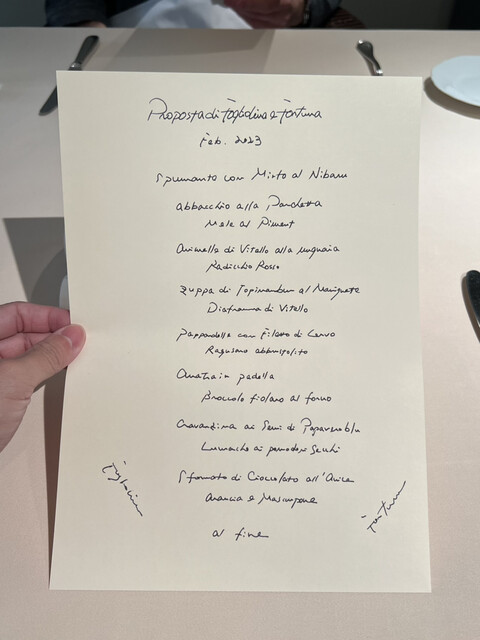 Proposta di Fogliolina e Fortuna
Feb. 2023
Spumante con Mirto al Nibam
abbacchio alla Porchetta
Mele al Piment
Animella di Vitello alla mugnaia
Radicchio Rosso
zuppa di Topinambur al
Diaframma di Vitello
Pappardelle con Filetto di Cervo
Ragusano abbrustolito
Anatra in padella
Broccolo fiolaro al forno
ai Semi di Papavero blu
Lumache ai pomodori Secchi
Sformato di Cioccolato all'Anice
Arancia e Mascarpone
al fine